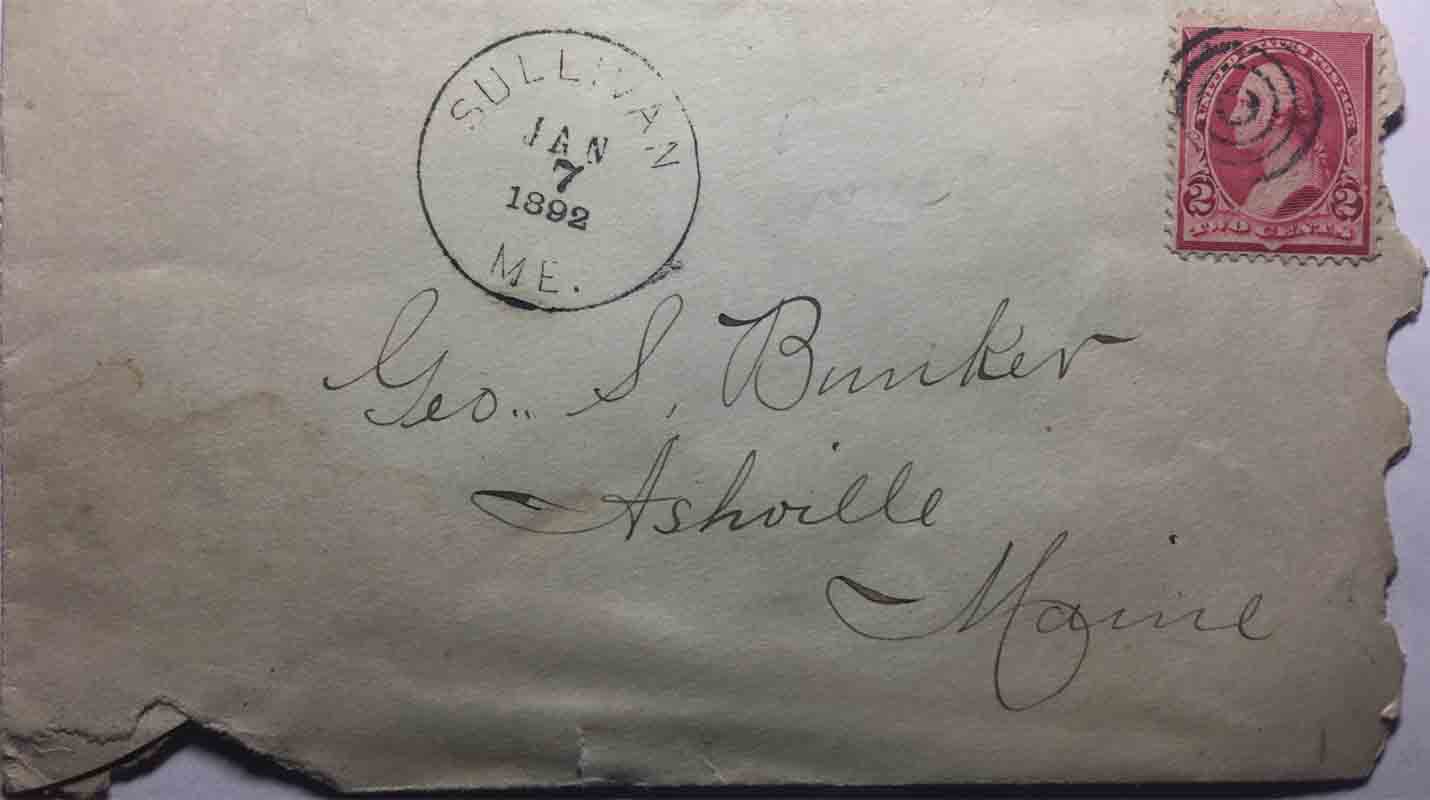 SULLIVAN
JAN
7
1892
ME.
UNITED STATES POSTAGE
2 2
TWO CENTS
Geo.. S. Bunker
Ashville
Maine